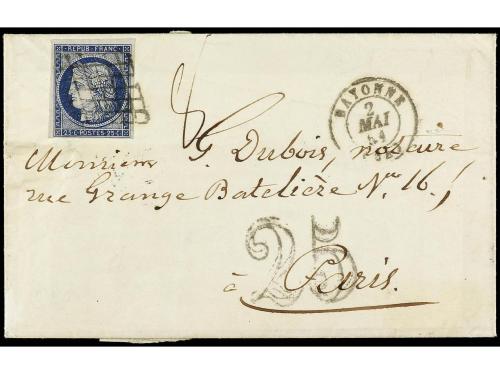 REPUB. FRANC.
25 c. POSTES 25 c.
BAYONNE
2
MAI
Monsieur G. Dubois, notaire
rue Grange Batelière No. 16,
25
à Paris.